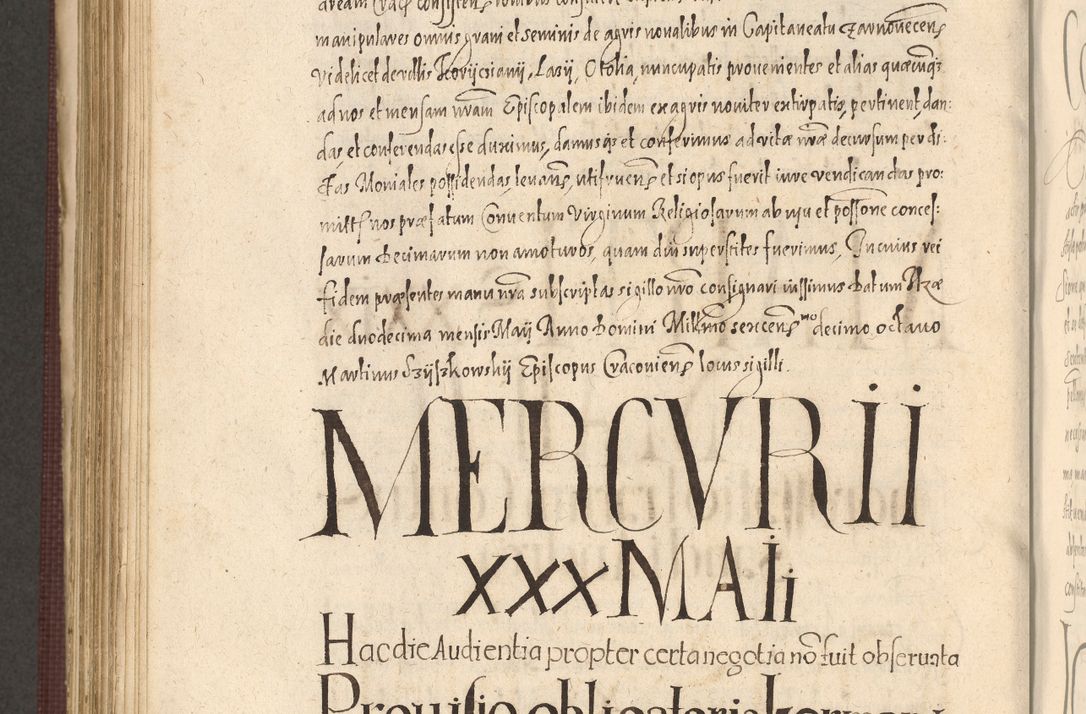 manipulares omnis grani et seminis de agris novalibus in Capitaneatu Tarnovecens
videlicet de villis Koryczianij, Lazij, Otolia, nuncupatis provenientes et alias quæcunqz
ad nos et mensam nrãm Episcopalem ibidem ex agris noviter extirpatis, pertinent, dan:
das et conferendas esse duximus, damusqz et conferimus ad vitæ nræ decursum per di:
ctas Moniales possidendas levans, utifruens et si opus fuerit iure vendicandas pro:
mitts nos præfatum Conventum Virginum Religiosarum ab usu et possone conces:
sarum Decimarum non amoturos, quam diu superstites fuerimus, In cuius rei
fidem præsentes manu nra subscriptas sigillo nro consignari iussimus Datum
die duodecima mensis Maij Anno Domini Millmo sexcens mo decimo octavo
Martinus Szijszkowskij Episcopus Cracoviens locus sigilli.
MERCVRII
XXX MAIi
Hac die Audientia propter certa negotia nõ fuit observata
Provisio obligatoria